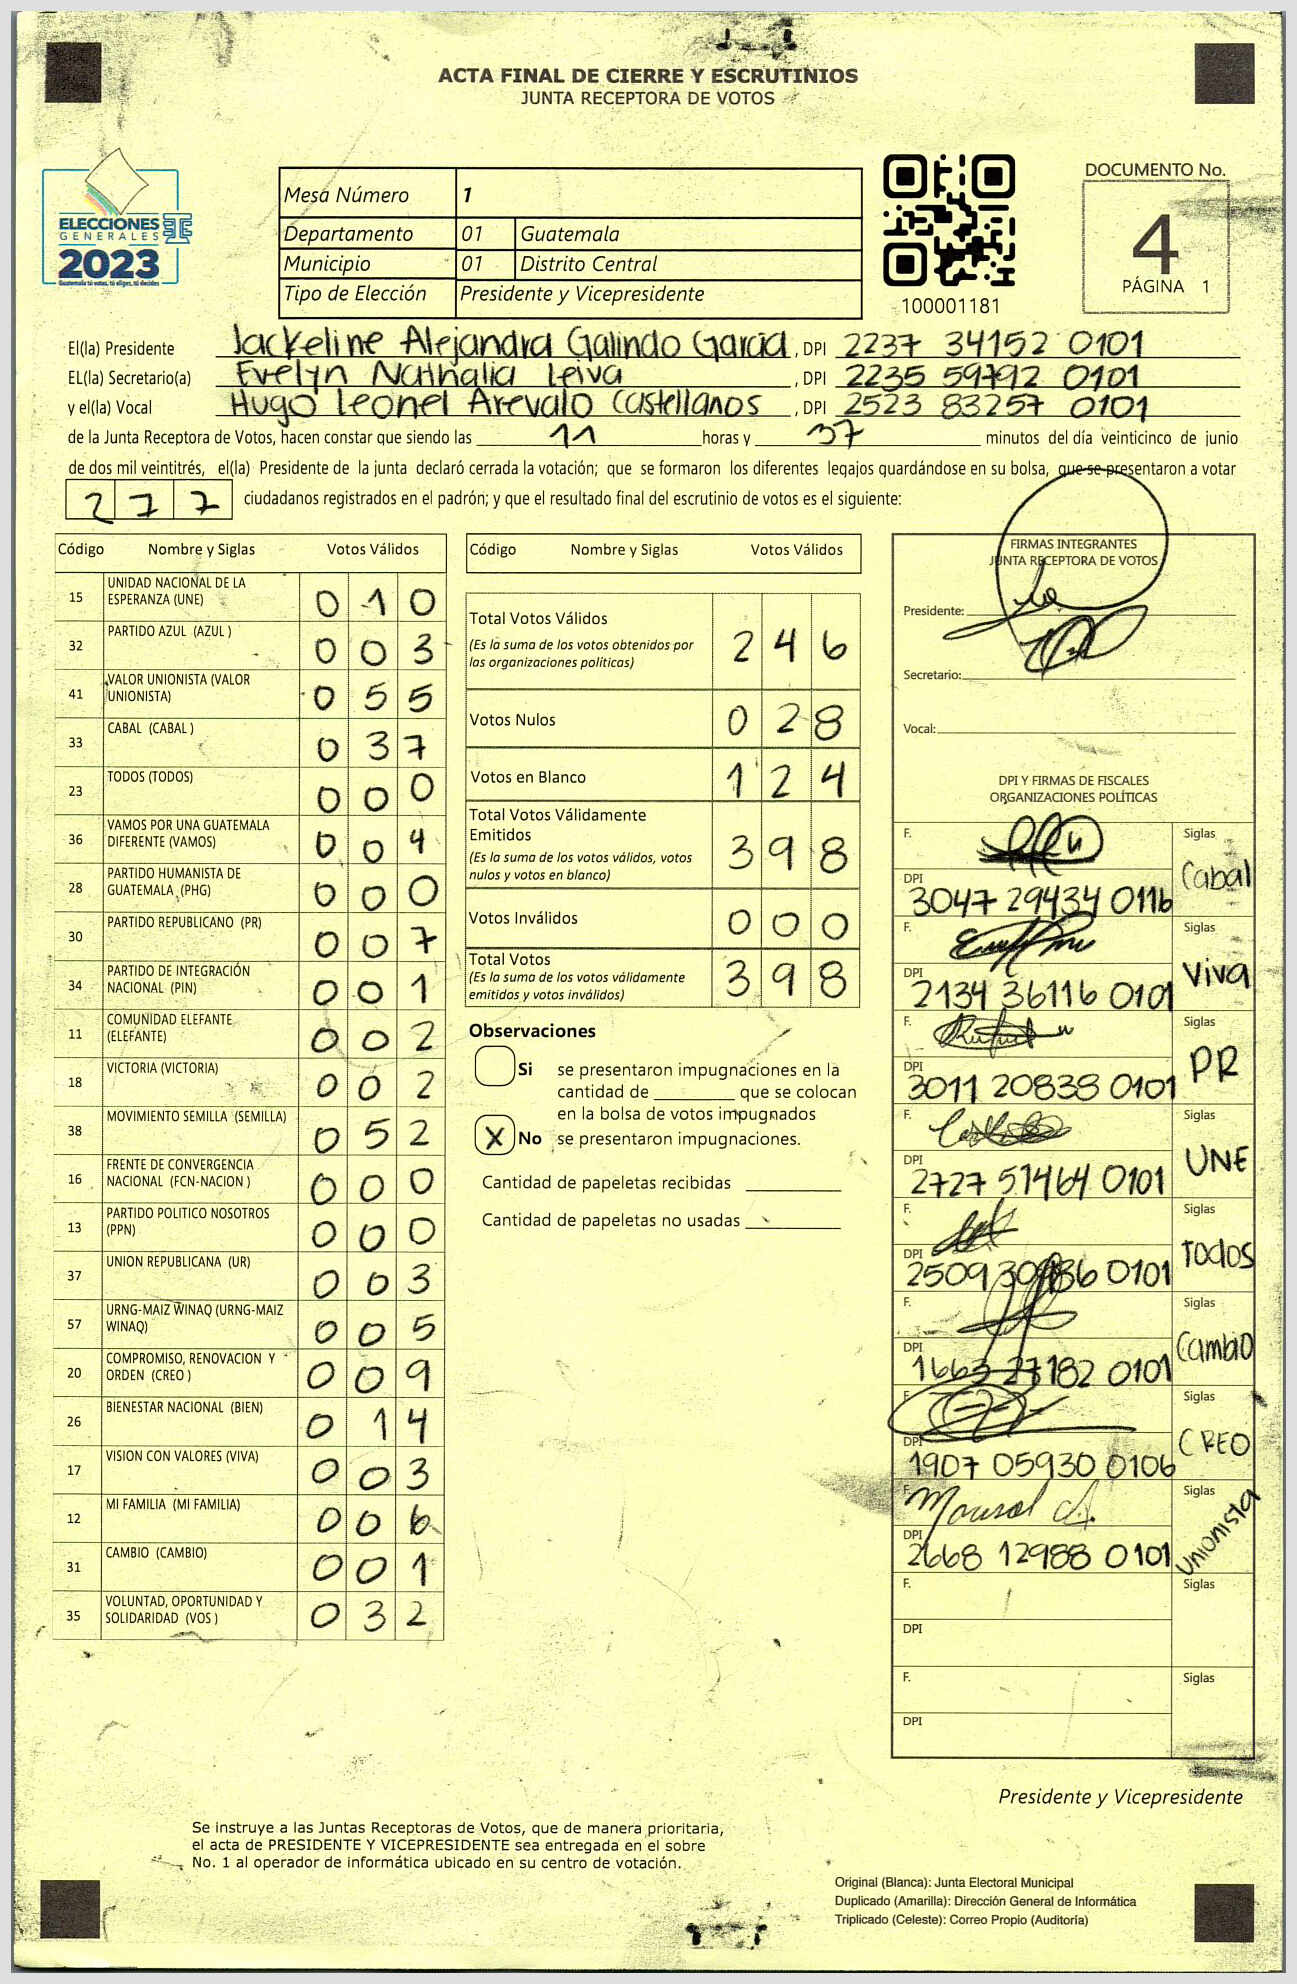 ACTA FINAL DE CIERRE Y ESCRUTINIOS
JUNTA RECEPTORA DE VOTOS
ELECCIONES
GENERALES
2023
Guatemala tú votas, tú eliges, tú decides
Mesa Número 1
Departamento 01 Guatemala
Municipio 01 Distrito Central
Tipo de Elección Presidente y Vicepresidente
100001181
DOCUMENTO No.
4
PÁGINA 1
El(la) Presidente Jackeline Alejandra Galindo García, DPI 2237 34152 0101
EL(la) Secretario(a) Evelyn Nathalia Leiva, DPI 2235 59792 0101
y el(la) Vocal Hugo Leonel Arevalo Castellanos, DPI 2523 83257 0101
de la Junta Receptora de Votos, hacen constar que siendo las 11 horas y 37 minutos del día veinticinco de junio
de dos mil veintitrés, el(la) Presidente de la junta declaró cerrada la votación; que se formaron los diferentes legajos guardándose en su bolsa, que se presentaron a votar
277 ciudadanos registrados en el padrón; y que el resultado final del escrutinio de votos es el siguiente:
Código Nombre y Siglas Votos Válidos
15 UNIDAD NACIONAL DE LA ESPERANZA (UNE) 010
32 PARTIDO AZUL (AZUL ) 003
41 VALOR UNIONISTA (VALOR UNIONISTA) 055
33 CABAL (CABAL ) 037
23 TODOS (TODOS) 000
36 VAMOS POR UNA GUATEMALA DIFERENTE (VAMOS) 004
28 PARTIDO HUMANISTA DE GUATEMALA (PHG) 000
30 PARTIDO REPUBLICANO (PR) 007
34 PARTIDO DE INTEGRACIÓN NACIONAL (PIN) 001
11 COMUNIDAD ELEFANTE (ELEFANTE) 002
18 VICTORIA (VICTORIA) 002
38 MOVIMIENTO SEMILLA (SEMILLA) 052
16 FRENTE DE CONVERGENCIA NACIONAL (FCN-NACION ) 000
13 PARTIDO POLITICO NOSOTROS (PPN) 000
37 UNION REPUBLICANA (UR) 003
57 URNG-MAIZ WINAQ (URNG-MAIZ WINAQ) 005
20 COMPROMISO, RENOVACION Y ORDEN (CREO ) 009
26 BIENESTAR NACIONAL (BIEN) 014
17 VISION CON VALORES (VIVA) 003
12 MI FAMILIA (MI FAMILIA) 006
31 CAMBIO (CAMBIO) 001
35 VOLUNTAD, OPORTUNIDAD Y SOLIDARIDAD (VOS ) 032
Código Nombre y Siglas Votos Válidos
Total Votos Válidos 246
(Es la suma de los votos obtenidos por
las organizaciones políticas)
Votos Nulos 028
Votos en Blanco 124
Total Votos Válidamente
Emitidos 398
(Es la suma de los votos válidos, votos
nulos y votos en blanco)
Votos Inválidos 000
Total Votos 398
(Es la suma de los votos válidamente
emitidos y votos inválidos)
Observaciones
Si se presentaron impugnaciones en la
cantidad de _________ que se colocan
en la bolsa de votos impugnados
X No se presentaron impugnaciones.
Cantidad de papeletas recibidas
Cantidad de papeletas no usadas
FIRMAS INTEGRANTES
JUNTA RECEPTORA DE VOTOS
Presidente:
Secretario:
Vocal:
DPI Y FIRMAS DE FISCALES
ORGANIZACIONES POLÍTICAS
F. Siglas Cabal
DPI 3047 29434 0116
F. Siglas Viva
DPI 2134 36116 0101
F. Siglas PR
DPI 3011 20838 0101
F. Siglas UNE
DPI 2727 51464 0101
F. Siglas Todos
DPI 2509 0101
F. Siglas Cambio
DPI 1663 27182 0101
F. Siglas CREO
DPI 1907 05930 0106
F. Siglas Unionista
DPI 2668 12988 0101
F. Siglas
DPI
F. Siglas
DPI
Presidente y Vicepresidente
Se instruye a las Juntas Receptoras de Votos, que de manera prioritaria,
el acta de PRESIDENTE Y VICEPRESIDENTE sea entregada en el sobre
No. 1 al operador de informática ubicado en su centro de votación.
Original (Blanca): Junta Electoral Municipal
Duplicado (Amarilla): Dirección General de Informática
Triplicado (Celeste): Correo Propio (Auditoría)